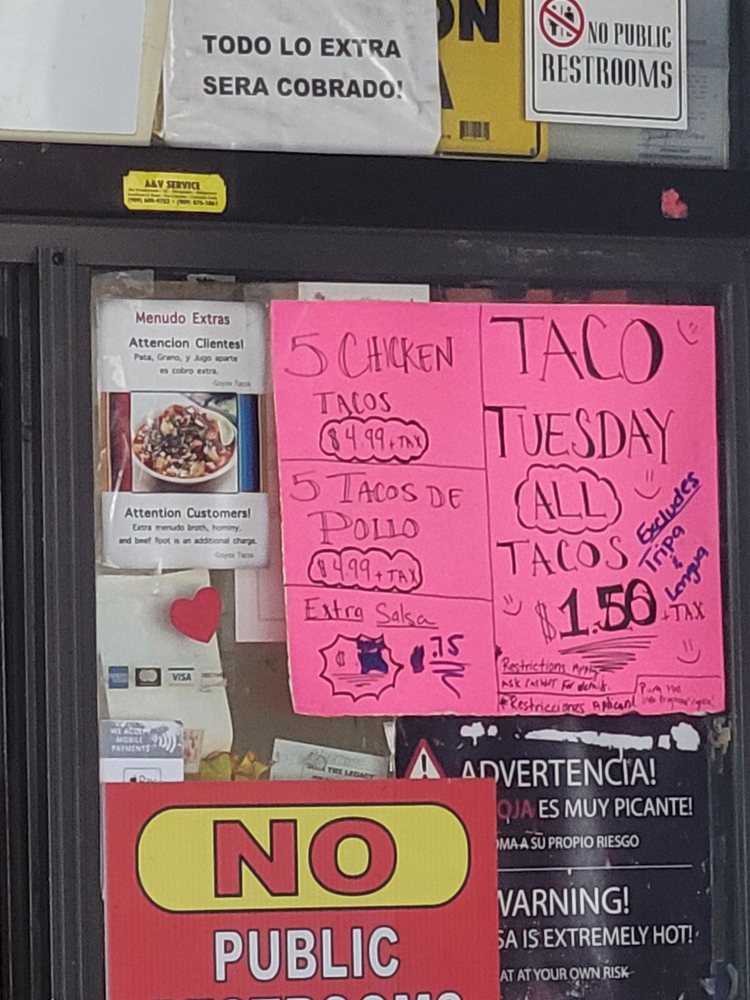 TODO LO EXTRA
SERA COBRADO!
ON
A
NO PUBLIC
RESTROOMS
A&V SERVICE
Menudo Extras
Attencion Clientes!
Pata, Grano, y Jugo aparte
es cobro extra.
-Goyos Tacos
Attention Customers!
Extra menudo broth, hominy,
and beef foot is an additional charge.
-Goyos Tacos
5 CHICKEN
TACOS
$4.99 +TAX
5 TACOS DE
POLLO
$4.99 +TAX
Extra Salsa
$ .75
TACO
TUESDAY
ALL
TACOS
Excludes
Tripa
&
Lengua
$1.50 +TAX
Restrictions Apply
ASK CASHIER For details.
*Restricciones Aplican!
VISA
WE ACCEPT
MOBILE
PAYMENTS
Pay
THE LEGACY
ADVERTENCIA!
OJA ES MUY PICANTE!
OMA A SU PROPIO RIESGO
WARNING!
SA IS EXTREMELY HOT!
AT AT YOUR OWN RISK
NO
PUBLIC
RESTROOMS